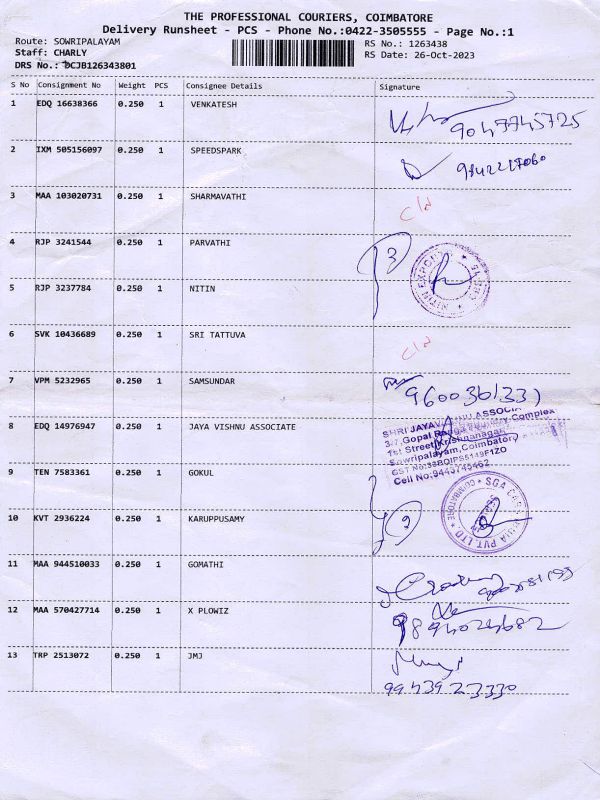 THE PROFESSIONAL COURIERS, COIMBATORE
Delivery Runsheet - PCS - Phone No.:0422-3505555 - Page No.:1
Route: SOWRIPALAYAM
RS No.: 1263438
Staff: CHARLY
RS Date: 26-Oct-2023
DRS No.: DCJB126343801
S No Consignment No Weight PCS Consignee Details Signature
1 EDQ 16638366 0.250 1 VENKATESH
9047745725
2 IXM 505156097 0.250 1 SPEEDSPARK
3 MAA 103020731 0.250 1 SHARMAVATHI
4 RJP 3241544 0.250 1 PARVATHI
3
NITIN EXPORTS
5 RJP 3237784 0.250 1 NITIN
6 SVK 10436689 0.250 1 SRI TATTUVA
7 VPM 5232965 0.250 1 SAMSUNDAR
9600361331
8 EDQ 14976947 0.250 1 JAYA VISHNU ASSOCIATE
Complex
3/7, Gopal
1st Street, Krishnanagar
Sowripalayam, Coimbatore
Cell No:9443745462
9 TEN 7583361 0.250 1 GOKUL
SGA
PVT. LTD.
COIMBATORE
10 KVT 2936224 0.250 1 KARUPPUSAMY
2
11 MAA 944510033 0.250 1 GOMATHI
12 MAA 570427714 0.250 1 X PLOWIZ
9894024682
13 TRP 2513072 0.250 1 JMJ
9943923330